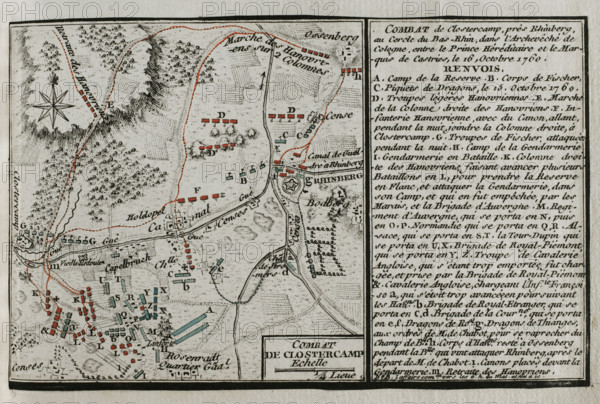 COMBAT de CLOSTERCAMP, prés Rhinberg,
au Cercle du Bas-Rhin, dans l'Archevêché de
Cologne, entre le Prince Héréditaire et le Mar-
quis de Castries, le 16, Octobre 1760.
RENVOIS.
A. Camp de la Reserve. B. Corps de Fischer,
C. Piquets de Dragons, le 15, Octobre 1760.
D. Troupes légères Hanovriennes. E. Marche
de la Colonne, droite des Hanovriens. F. In-
fanterie Hanovrienne, avec du Canon, allant,
pendant la nuit, joindre la Colonne droite, à
Clostercamp. G. Troupes de Fischer, attaquées
pendant la nuit. H. Camp de la Gendarmerie
I. Gendarmerie en Bataille. K. Colonne droi-
te des Hanovriens, faisant avancer plusieurs
Bataillons en L, pour prendre la Reserve
en Flanc, et attaquer la Gendarmerie, dans
son Camp, et qui en fut empêchée, par les
Marais, et la Brigade d'Auvergne. M. Regi-
ment d'Auvergne, qui se porta en N, puis
en O. P. Normandie qui se porta en Q, R. Al-
sace, qui se porta en S, T. la Tour-Dupin qui
se porta en U, X. Brigade de Royal-Piémont,
qui se porta en Y, Z. Troupe de Cavalerie
Angloise, qui s'étant trop emportée, fut char-
gée, et prise par la Brigade de Royal-Piémont
&. Cavalerie Angloise, chargeant l'Inf.ie Françoi-
se a, qui s'étoit trop avancée en poursuivant
les Han.ns b. Brigade de Royal-Etranger, qui se
porta en c, d. Brigade de la Cour.ne qui se porta
en e, f. Dragons de g. Dragons de Thianges,
aux ordres de M. de Chabot, pour se raprocher du
Champ de B.lle h. Corps d' resté à Ossenberg
pendant la B.lle qui vint attaquer Rhinberg, après le
départ de M. de Chabot. i. Canons placés devant la
Gendarmerie. m. Retraite des Hanovriens.
Marche des Hanovri-
ens sur 2 Colonnes
Ossenberg
la Cense
Canal de Guel-
dre à Rhinberg
RHINBERG
Holdepol
Canal
Guć
2 Censes
Capelbruch
Clle
Rosenradt
Quartier Gaal
Censes
COMBAT
DE CLOSTERCAMP
Echelle
1/4 Lieue